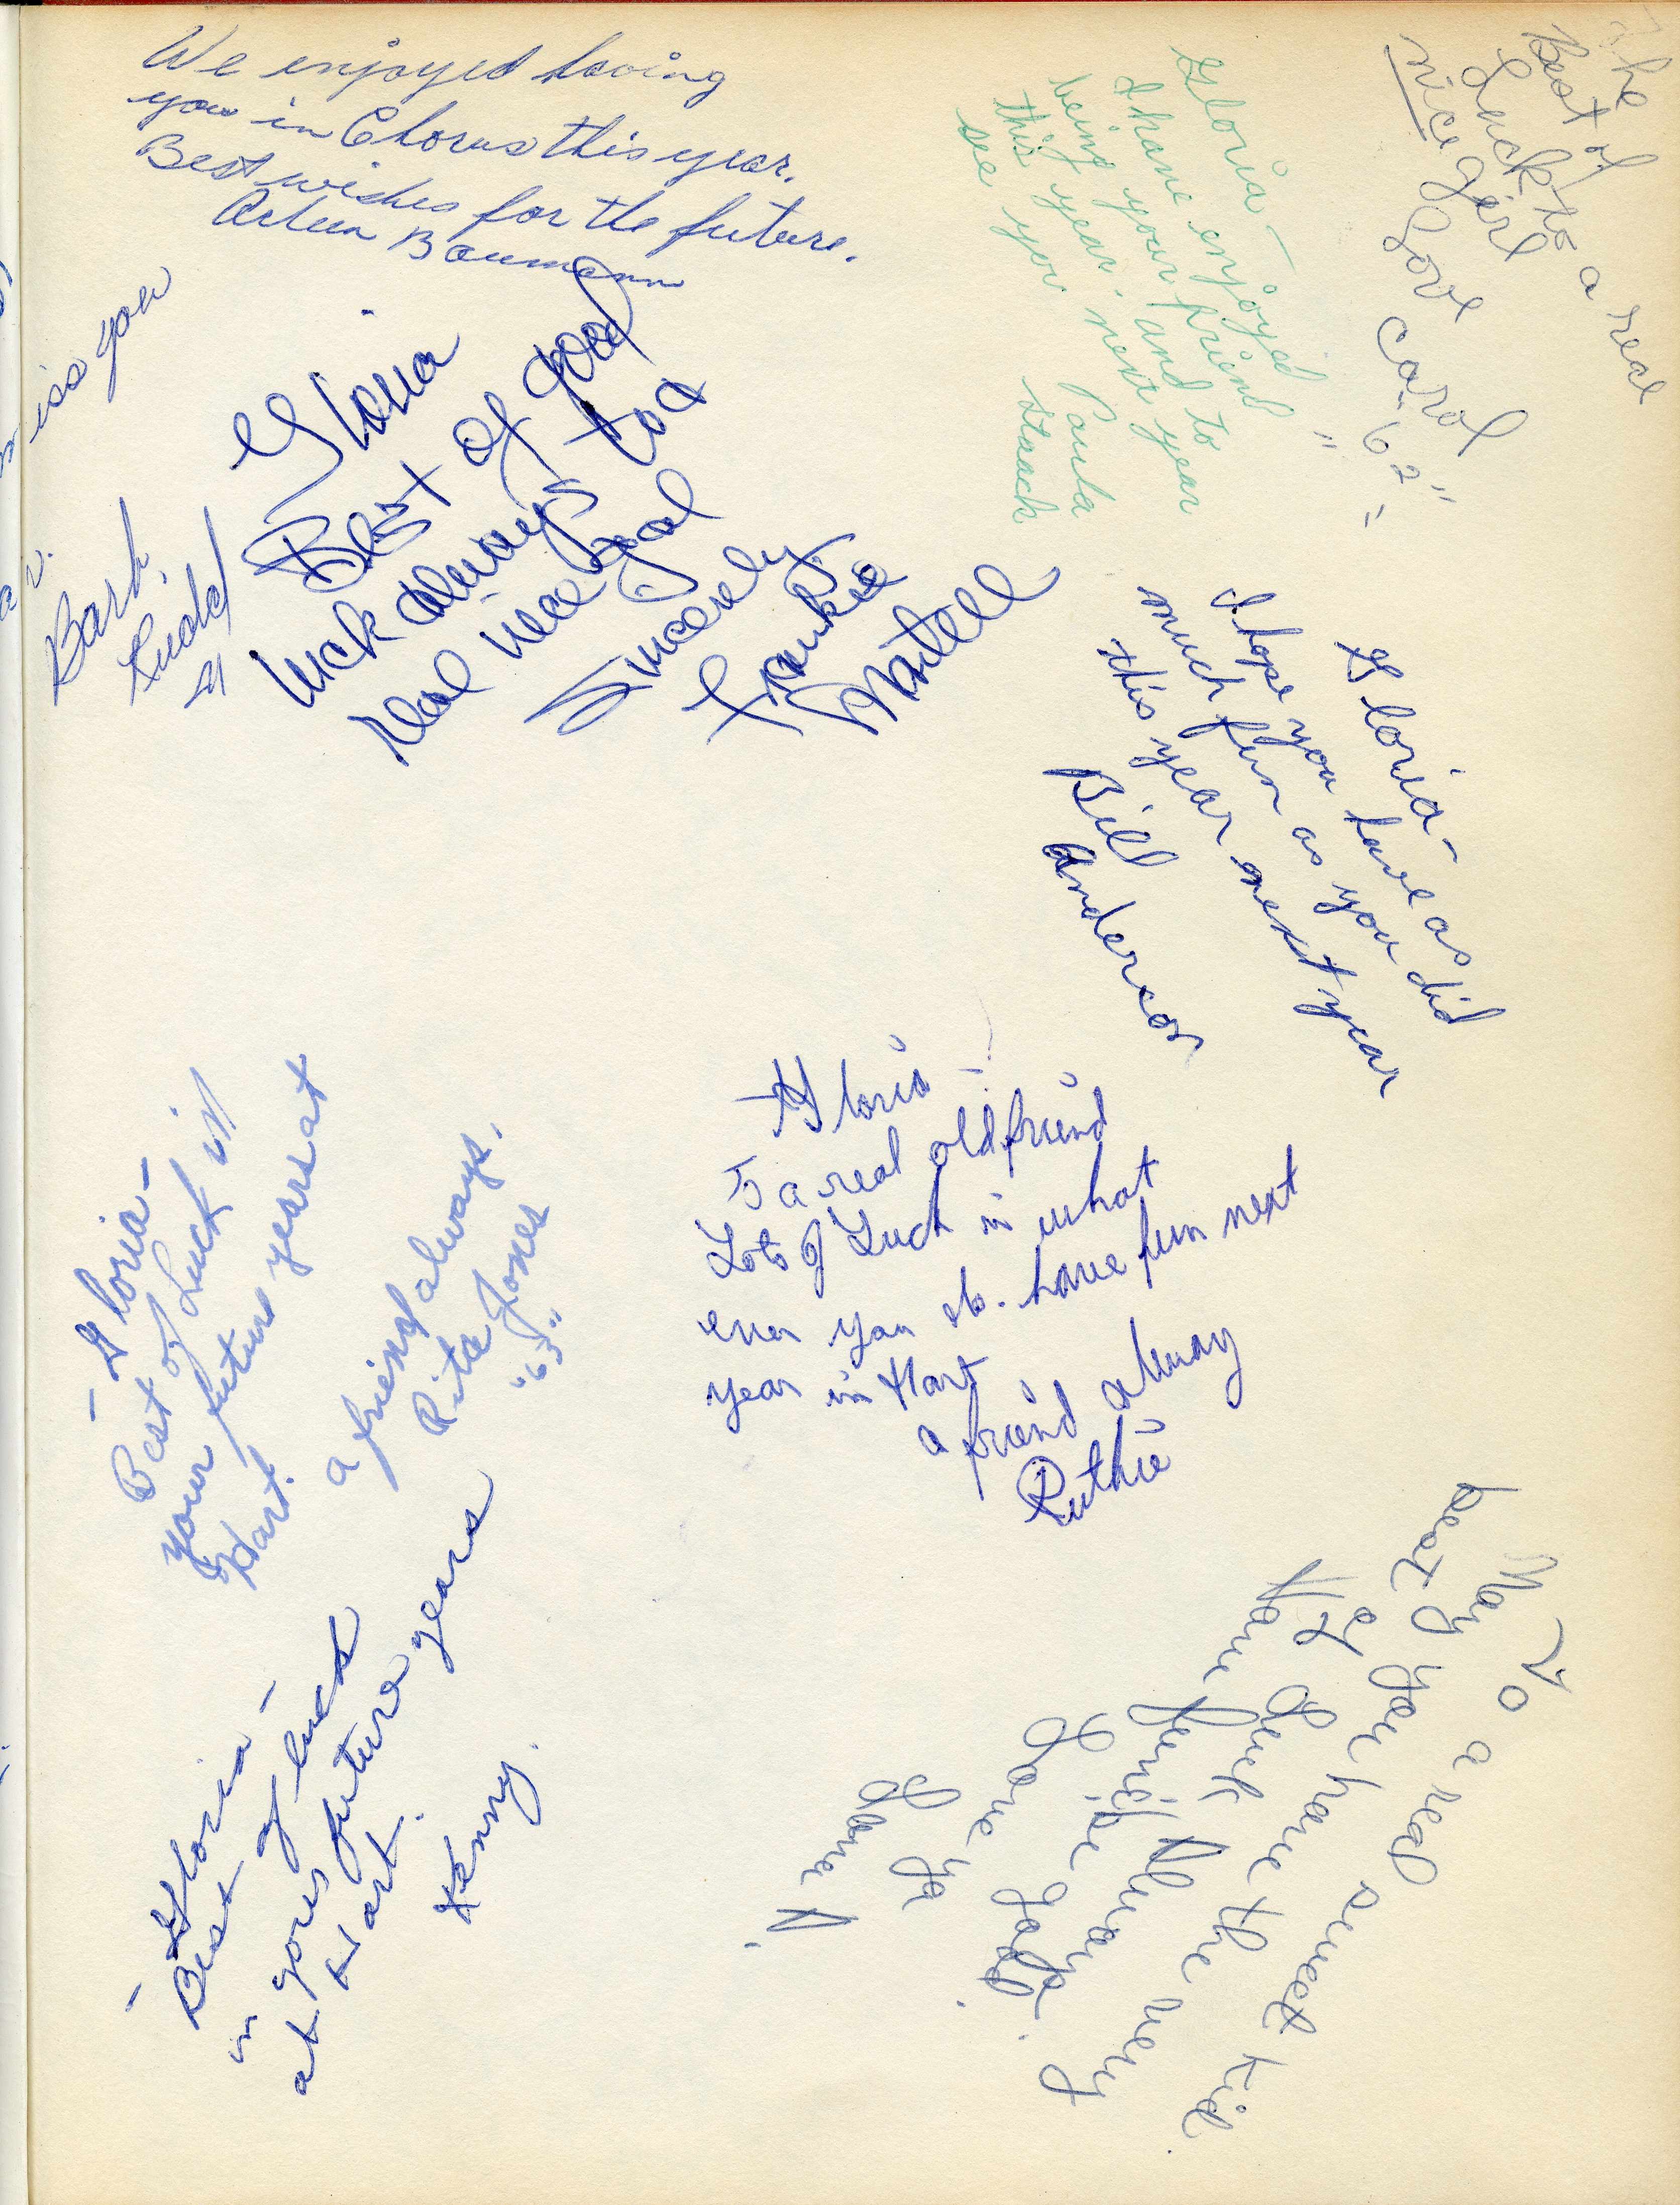 We enjoyed having
you in Chorus this year.
Best wishes for the future.
Arleen Baumann
The
Best of
Luck to a real
nice girl
Love
Carol
"62"
Gloria -
I have enjoyed
being your friend
this year, and to
see you next year
Paula
Staack
miss you
Barb
Gloria
Best of good
luck always to a
real nice gal
Sincerely,
Frankie
Martell
Gloria -
I hope you have as
much fun as you did
this year next year
Bill
Anderson
Gloria -
To a real old friend
Lots of Luck in what
ever you do. have fun next
year in Hart
a friend alway
Ruthie
- Gloria -
Best of Luck in
your future years at
Hart.
a friend always,
Rita Jones
"63"
- Gloria -
Best of luck
in your future years
at Hart.
Kenny.
To a real sweet kid.
May you have the very
best of Luck always.
Have fun & be good.
Love ya